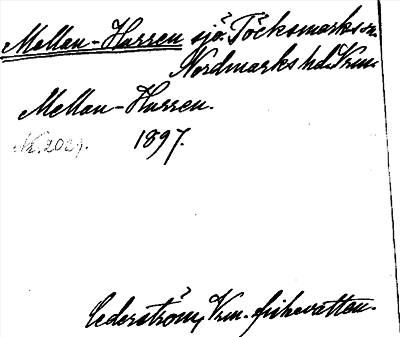 Mellan-Hurren sjö. Töcksmarks sn.
Nordmarks hd. Vrm.
Mellan-Hurren.
1897.
Cederström, Vrm. fiskevatten.